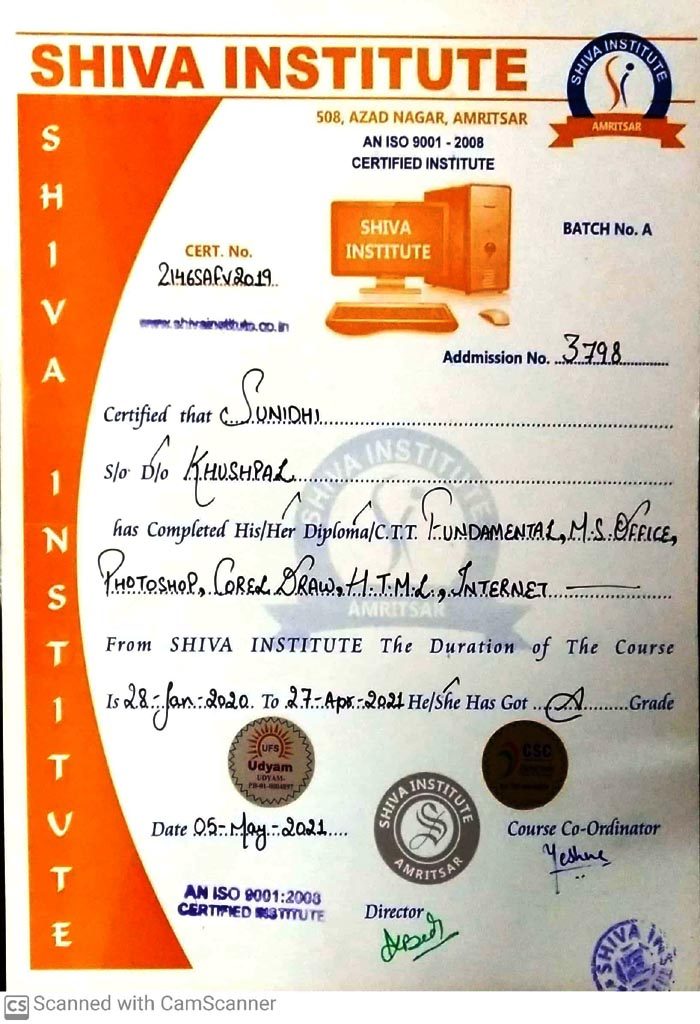 SHIVA INSTITUTE
SHIVA INSTITUTE
AMRITSAR
508, AZAD NAGAR, AMRITSAR
AN ISO 9001 - 2008
CERTIFIED INSTITUTE
SHIVA INSTITUTE
SHIVA
INSTITUTE
BATCH No. A
CERT. No.
2146SAFV2019
www.shivainstitute.co.in
Addmission No. 3798
Certified that SUNIDHI
S/o D/o KHUSHPAL
SHIVA INSTITUTE
has Completed His/Her Diploma/C.T.T. FUNDAMENTAL, M.S. OFFICE,
PHOTOSHOP, COREL DRAW, H.T.M.L., INTERNET
AMRITSAR
From SHIVA INSTITUTE The Duration of The Course
Is 28-Jan-2020 To 27-Apr-2021 He/She Has Got A Grade
UFS
Udyam
UDYAM-
CSC
SHIVA INSTITUTE
AMRITSAR
Date 05-May-2021
Course Co-Ordinator
AN ISO 9001:2008
CERTIFIED INSTITUTE
Director
SHIVA INS
CS Scanned with CamScanner